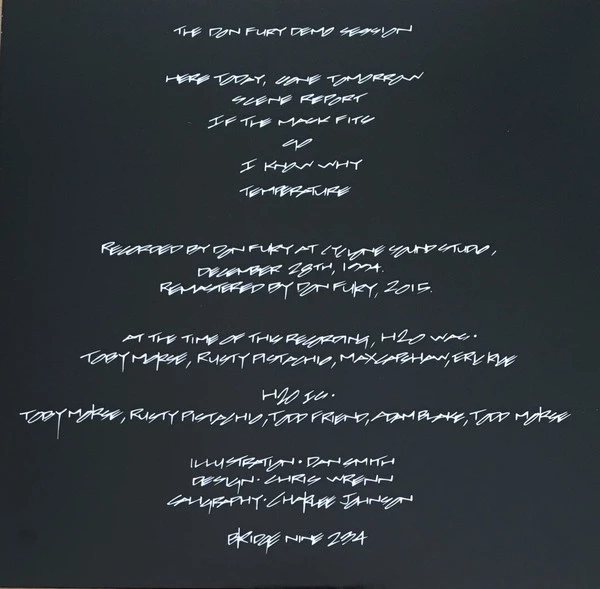 THE DON FURY DEMO SESSION
HERE TODAY, GONE TOMORROW
SCENE REPORT
IF THE MASK FITS
I KNOW WHY
TEMPERATURE
RECORDED BY DON FURY AT CYCLONE SOUND STUDIO,
DECEMBER 28TH, 1994.
REMASTERED BY DON FURY, 2015.
AT THE TIME OF THIS RECORDING, H2O WAS·
TOBY MORSE, RUSTY PISTACHIO, MAX CAPSHAW, ERIC RICE
H2O IS·
TOBY MORSE, RUSTY PISTACHIO, TODD FRIEND, ADAM BLAKE, TODD MORSE
ILLUSTRATION· DAN SMITH
DESIGN· CHRIS WRENN
CALIGRAPHY· CHARLEE JOHNSON
BRIDGE NINE 234